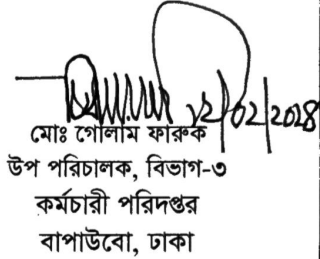 ১২/০২/২০২৪
মোঃ গোলাম ফারুক
উপ পরিচালক, বিভাগ-৩
কর্মচারী পরিদপ্তর
বাপাউবো, ঢাকা